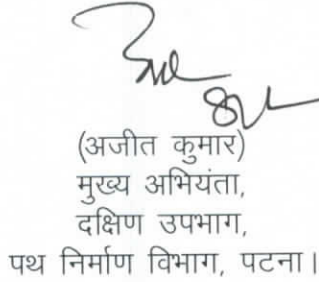 (अजीत कुमार)
मुख्य अभियंता,
दक्षिण उपभाग,
पथ निर्माण विभाग, पटना।